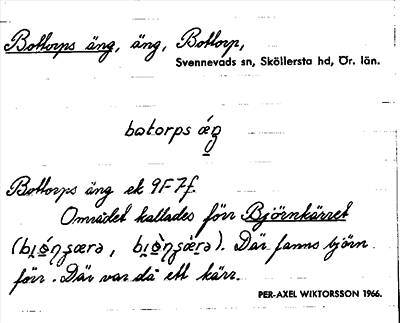 Bottorps äng, äng, Bottorp,
Svennevads sn, Sköllersta hd, Ör. län.
batorps ǽŋ
Bottorps äng ek 9F7f
Området kallades förr Björnkärret
förr. Där var då ett kärr.
PER-AXEL WIKTORSSON 1966.